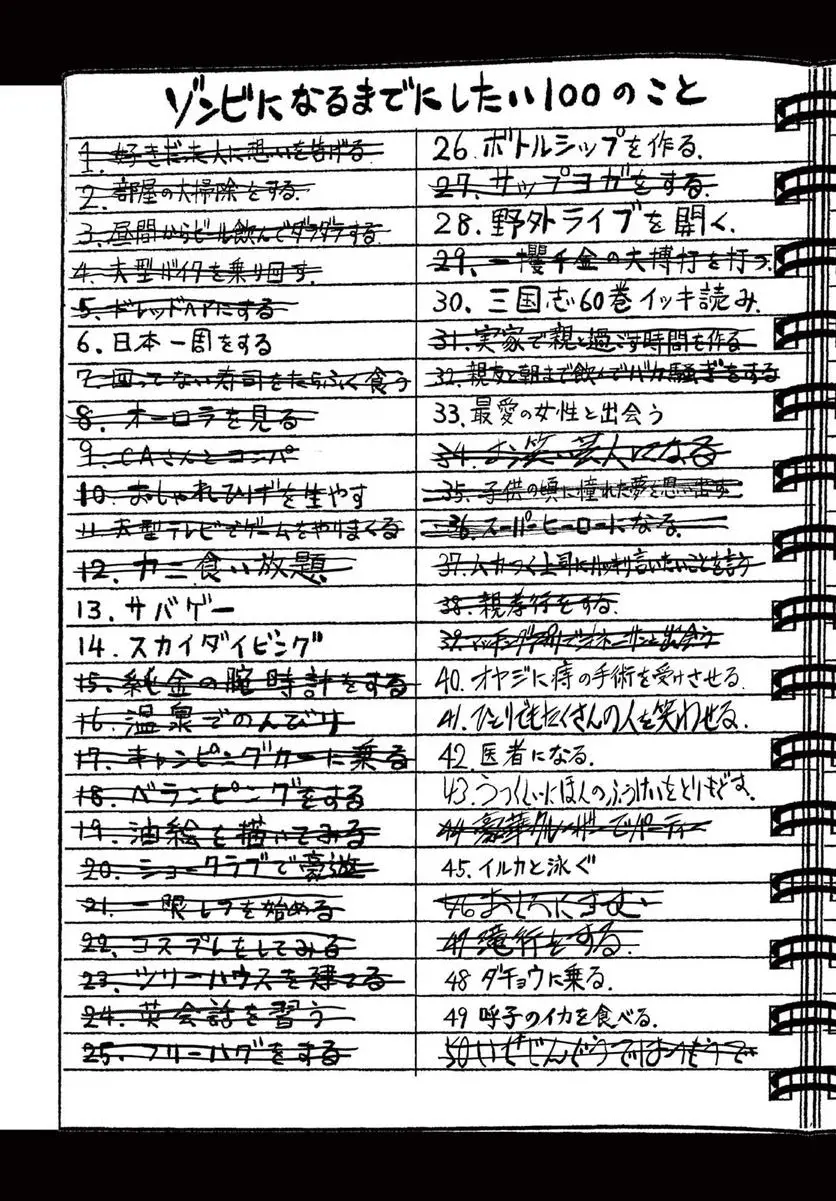 ゾンビになるまでにしたい100のこと
1. 好きだった人に想いを告げる
2. 部屋の大掃除をする
3. 昼間からビール飲んでダラダラする
4. 大型バイクを乗り回す
5. ドレッドヘアにする
6. 日本一周をする
7. 回ってない寿司をたらふく食う
8. オーロラを見る
9. CAさんとコンパ
10. おしゃれひげを生やす
11. 大型テレビでゲームをやりまくる
12. カニ食い放題
13. サバゲー
14. スカイダイビング
15. 純金の腕時計をする
16. 温泉でのんびり
17. キャンピングカーに乗る
18. ベランピングをする
19. 油絵を描いてみる
20. ショークラブで豪遊
21. 一眼レフを始める
22. コスプレをしてみる
23. ツリーハウスを建てる
24. 英会話を習う
25. フリーハグをする
26. ボトルシップを作る.
27. サップヨガをする
28. 野外ライブを開く.
29. 一攫千金の大博打を打つ
30. 三国志60巻イッキ読み.
31. 実家で親と過ごす時間を作る
32. 親友と朝まで飲んでバカ騒ぎをする
33. 最愛の女性と出会う
34. お笑い芸人になる
35. 子供の頃に憧れた夢を思い出す
36. スーパーヒーローになる.
37. ムカつく上司にハッキリ言いたいことを言う
38. 親孝行をする.
39.
40. オヤジに痔の手術を受けさせる.
41. ひとりでもたくさんの人を笑わせる.
42. 医者になる.
43. うつくしいにほんのふうけいをとりもどす.
44. 豪華クルーザーでパーティー
45. イルカと泳ぐ
46 おしろにすむ
47 滝行をする.
48 ダチョウに乗る.
49 呼子のイカを食べる.
50